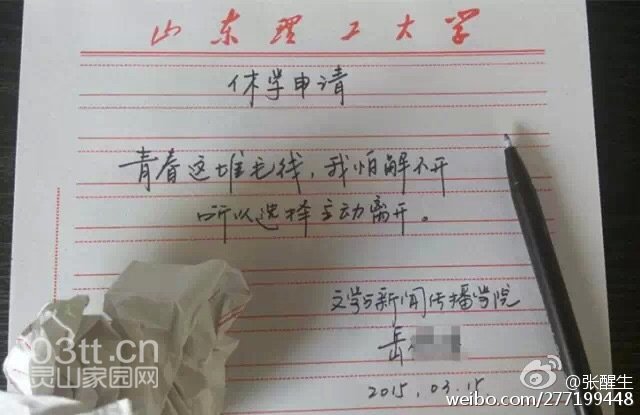 山东理工大学
休学申请
青春这堆毛线，我怕解不开
所以选择主动离开。
文学与新闻传播学院
岳
2015.03.15
03tt.cn
灵山家园网
@张醒生
weibo.com/277199448